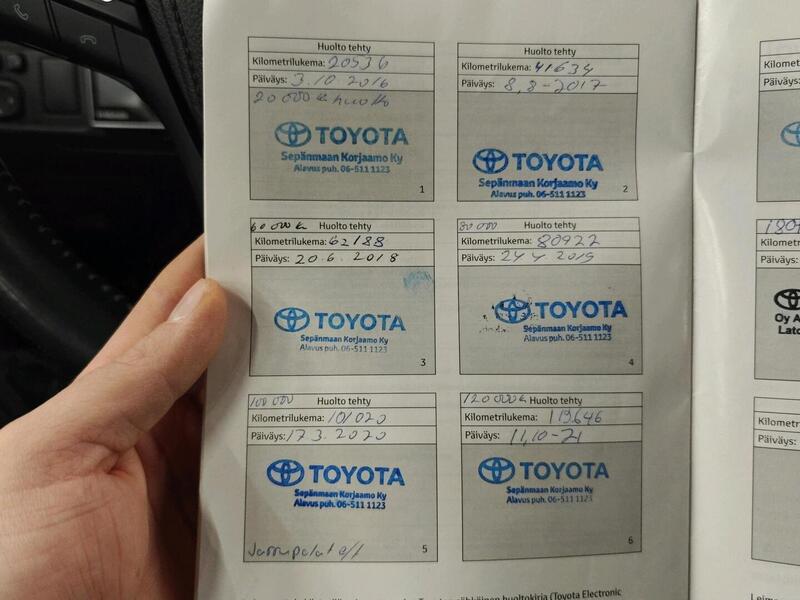 Huolto tehty
Kilometrilukema: 20536
Päiväys: 3.10.2016
20 000 huolto
TOYOTA
Sepänmaan Korjaamo Ky
Alavus puh. 06-511 1123
1
Huolto tehty
Kilometrilukema: 41634
Päiväys: 8,8-2017
TOYOTA
Sepänmaan Korjaamo Ky
Alavus puh. 06-511 1123
2
60 000 Huolto tehty
Kilometrilukema: 62188
Päiväys: 20.6.2018
TOYOTA
Sepänmaan Korjaamo Ky
Alavus puh. 06-511 1123
3
80 000 Huolto tehty
Kilometrilukema: 80922
Päiväys: 24 4. 2019
TOYOTA
Sepänmaan Korjaamo Ky
Alavus puh. 06-511 1123
4
100 000 Huolto tehty
Kilometrilukema: 101020
Päiväys: 17 3. 2020
TOYOTA
Sepänmaan Korjaamo Ky
Alavus puh. 06-511 1123
Jarrupalat e/t
5
120 000 Huolto tehty
Kilometrilukema: 119646
Päiväys: 11,10-21
TOYOTA
Sepänmaan Korjaamo Ky
Alavus puh. 06-511 1123
6
huoltokirja (Toyota Electronic
Kilome
Päiväys:
Kilometri
Päiväys:
Oy A
Lato
Kilometri
Päiväys: